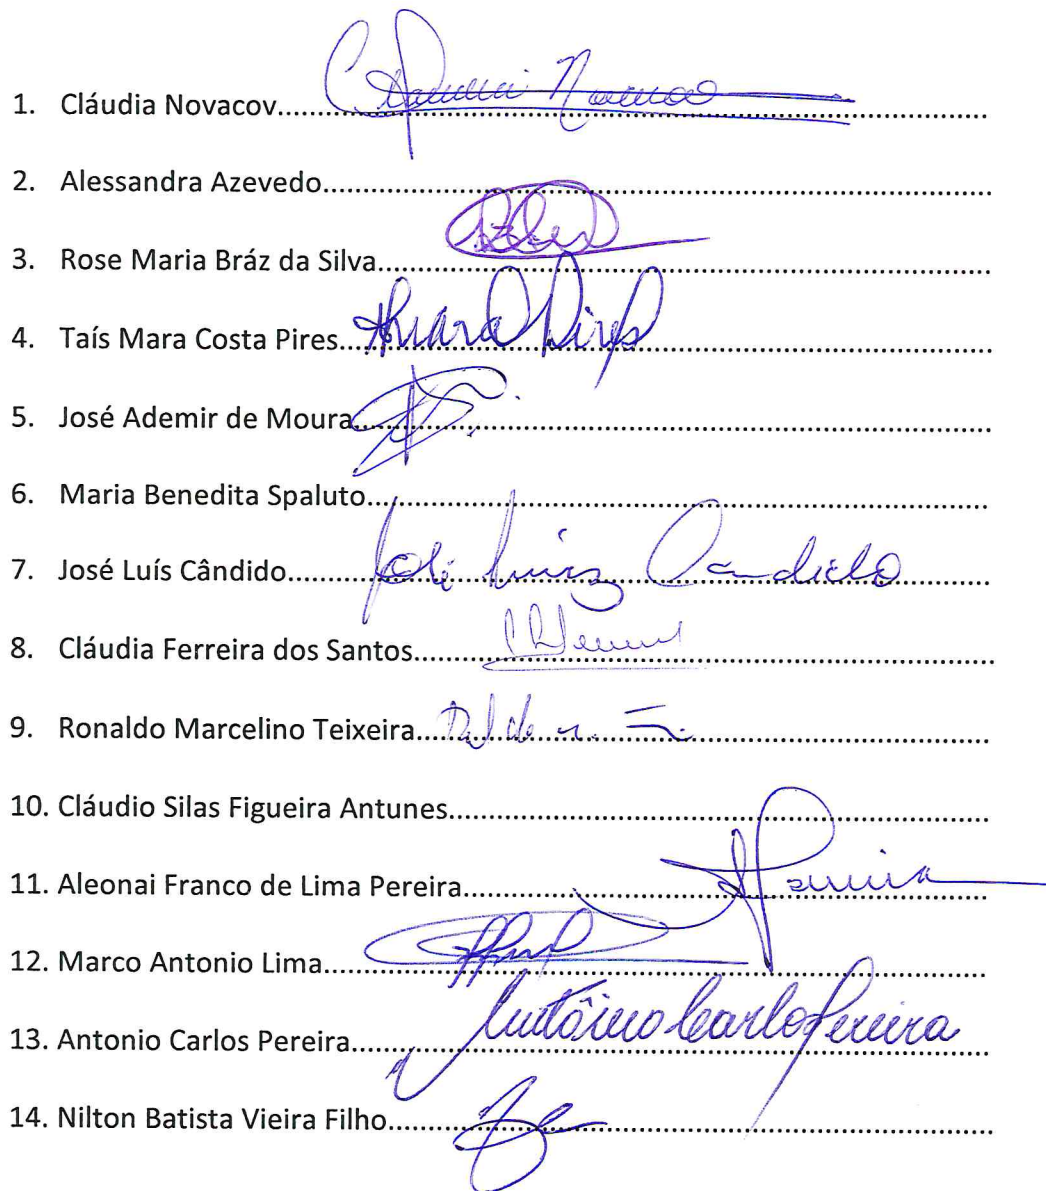 1. Cláudia Novacov
2. Alessandra Azevedo
3. Rose Maria Bráz da Silva
4. Taís Mara Costa Pires
5. José Ademir de Moura
6. Maria Benedita Spaluto
7. José Luís Cândido José Luiz Candido
8. Cláudia Ferreira dos Santos
9. Ronaldo Marcelino Teixeira
10. Cláudio Silas Figueira Antunes
11. Aleonai Franco de Lima Pereira
12. Marco Antonio Lima
13. Antonio Carlos Pereira Antônio Carlos Pereira
14. Nilton Batista Vieira Filho